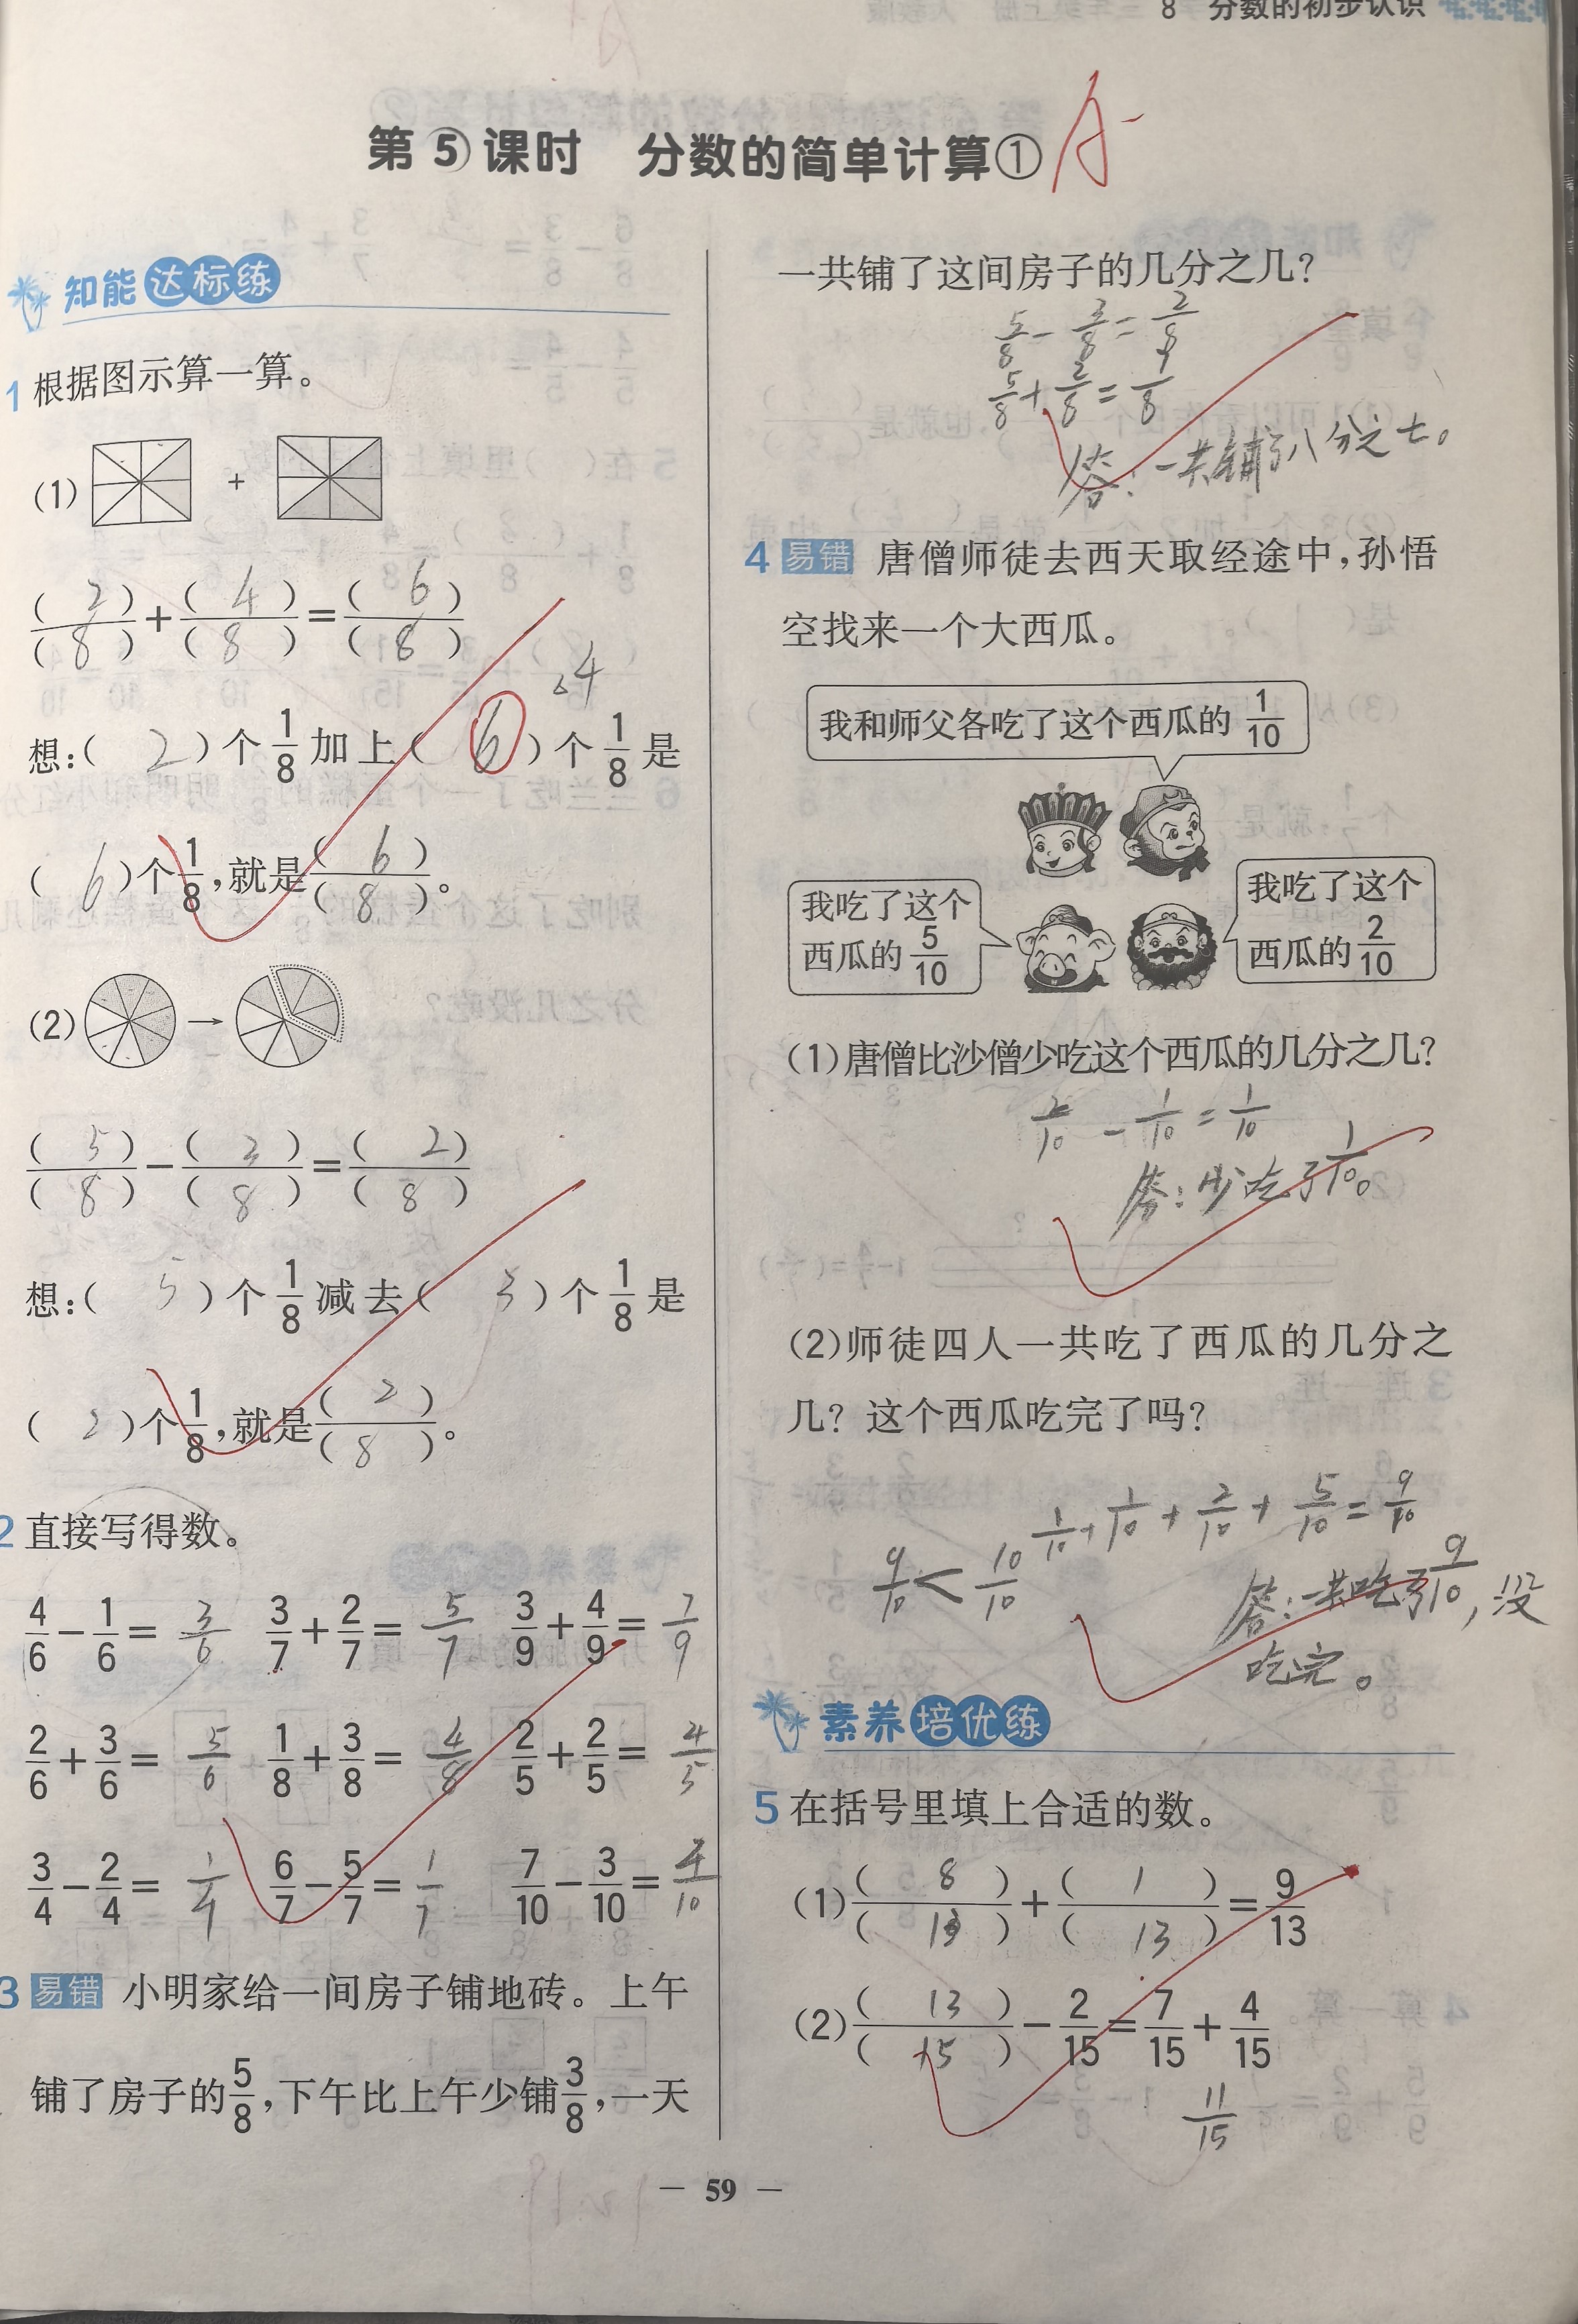 8 分数的初步认识
第5课时 分数的简单计算① A-
知能达标练
1 根据图示算一算。
(1) +
(2)/(8)+(4)/(8)=(6)/(8)
4
想:(2)个1/8加上(6)个1/8是
(6)个1/8,就是(6)/(8)。
(2) →
(5)/(8)-(3)/(8)=(2)/(8)
想:(5)个1/8减去(3)个1/8是
(2)个1/8,就是(2)/(8)。
2 直接写得数。
4/6-1/6=3/6 3/7+2/7=5/7 3/9+4/9=7/9
2/6+3/6=5/6 1/8+3/8=4/8 2/5+2/5=4/5
3/4-2/4=1/4 6/7-5/7=1/7 7/10-3/10=4/10
3 易错 小明家给一间房子铺地砖。上午
铺了房子的5/8,下午比上午少铺3/8,一天
一共铺了这间房子的几分之几?
5/8-3/8=2/8
5/8+2/8=7/8
答:一共铺了八分之七。
4 易错 唐僧师徒去西天取经途中,孙悟
空找来一个大西瓜。
我和师父各吃了这个西瓜的1/10
我吃了这个
西瓜的5/10
我吃了这个
西瓜的2/10
(1)唐僧比沙僧少吃这个西瓜的几分之几?
2/10-1/10=1/10
答:少吃了1/10。
(2)师徒四人一共吃了西瓜的几分之
几?这个西瓜吃完了吗?
1/10+1/10+2/10+5/10=9/10
9/10<10/10
答:一共吃了9/10,没
吃完。
素养培优练
5 在括号里填上合适的数。
(1)(8)/(13)+(1)/(13)=9/13
(2)(13)/(15)-2/15=7/15+4/15
11/15
— 59 —